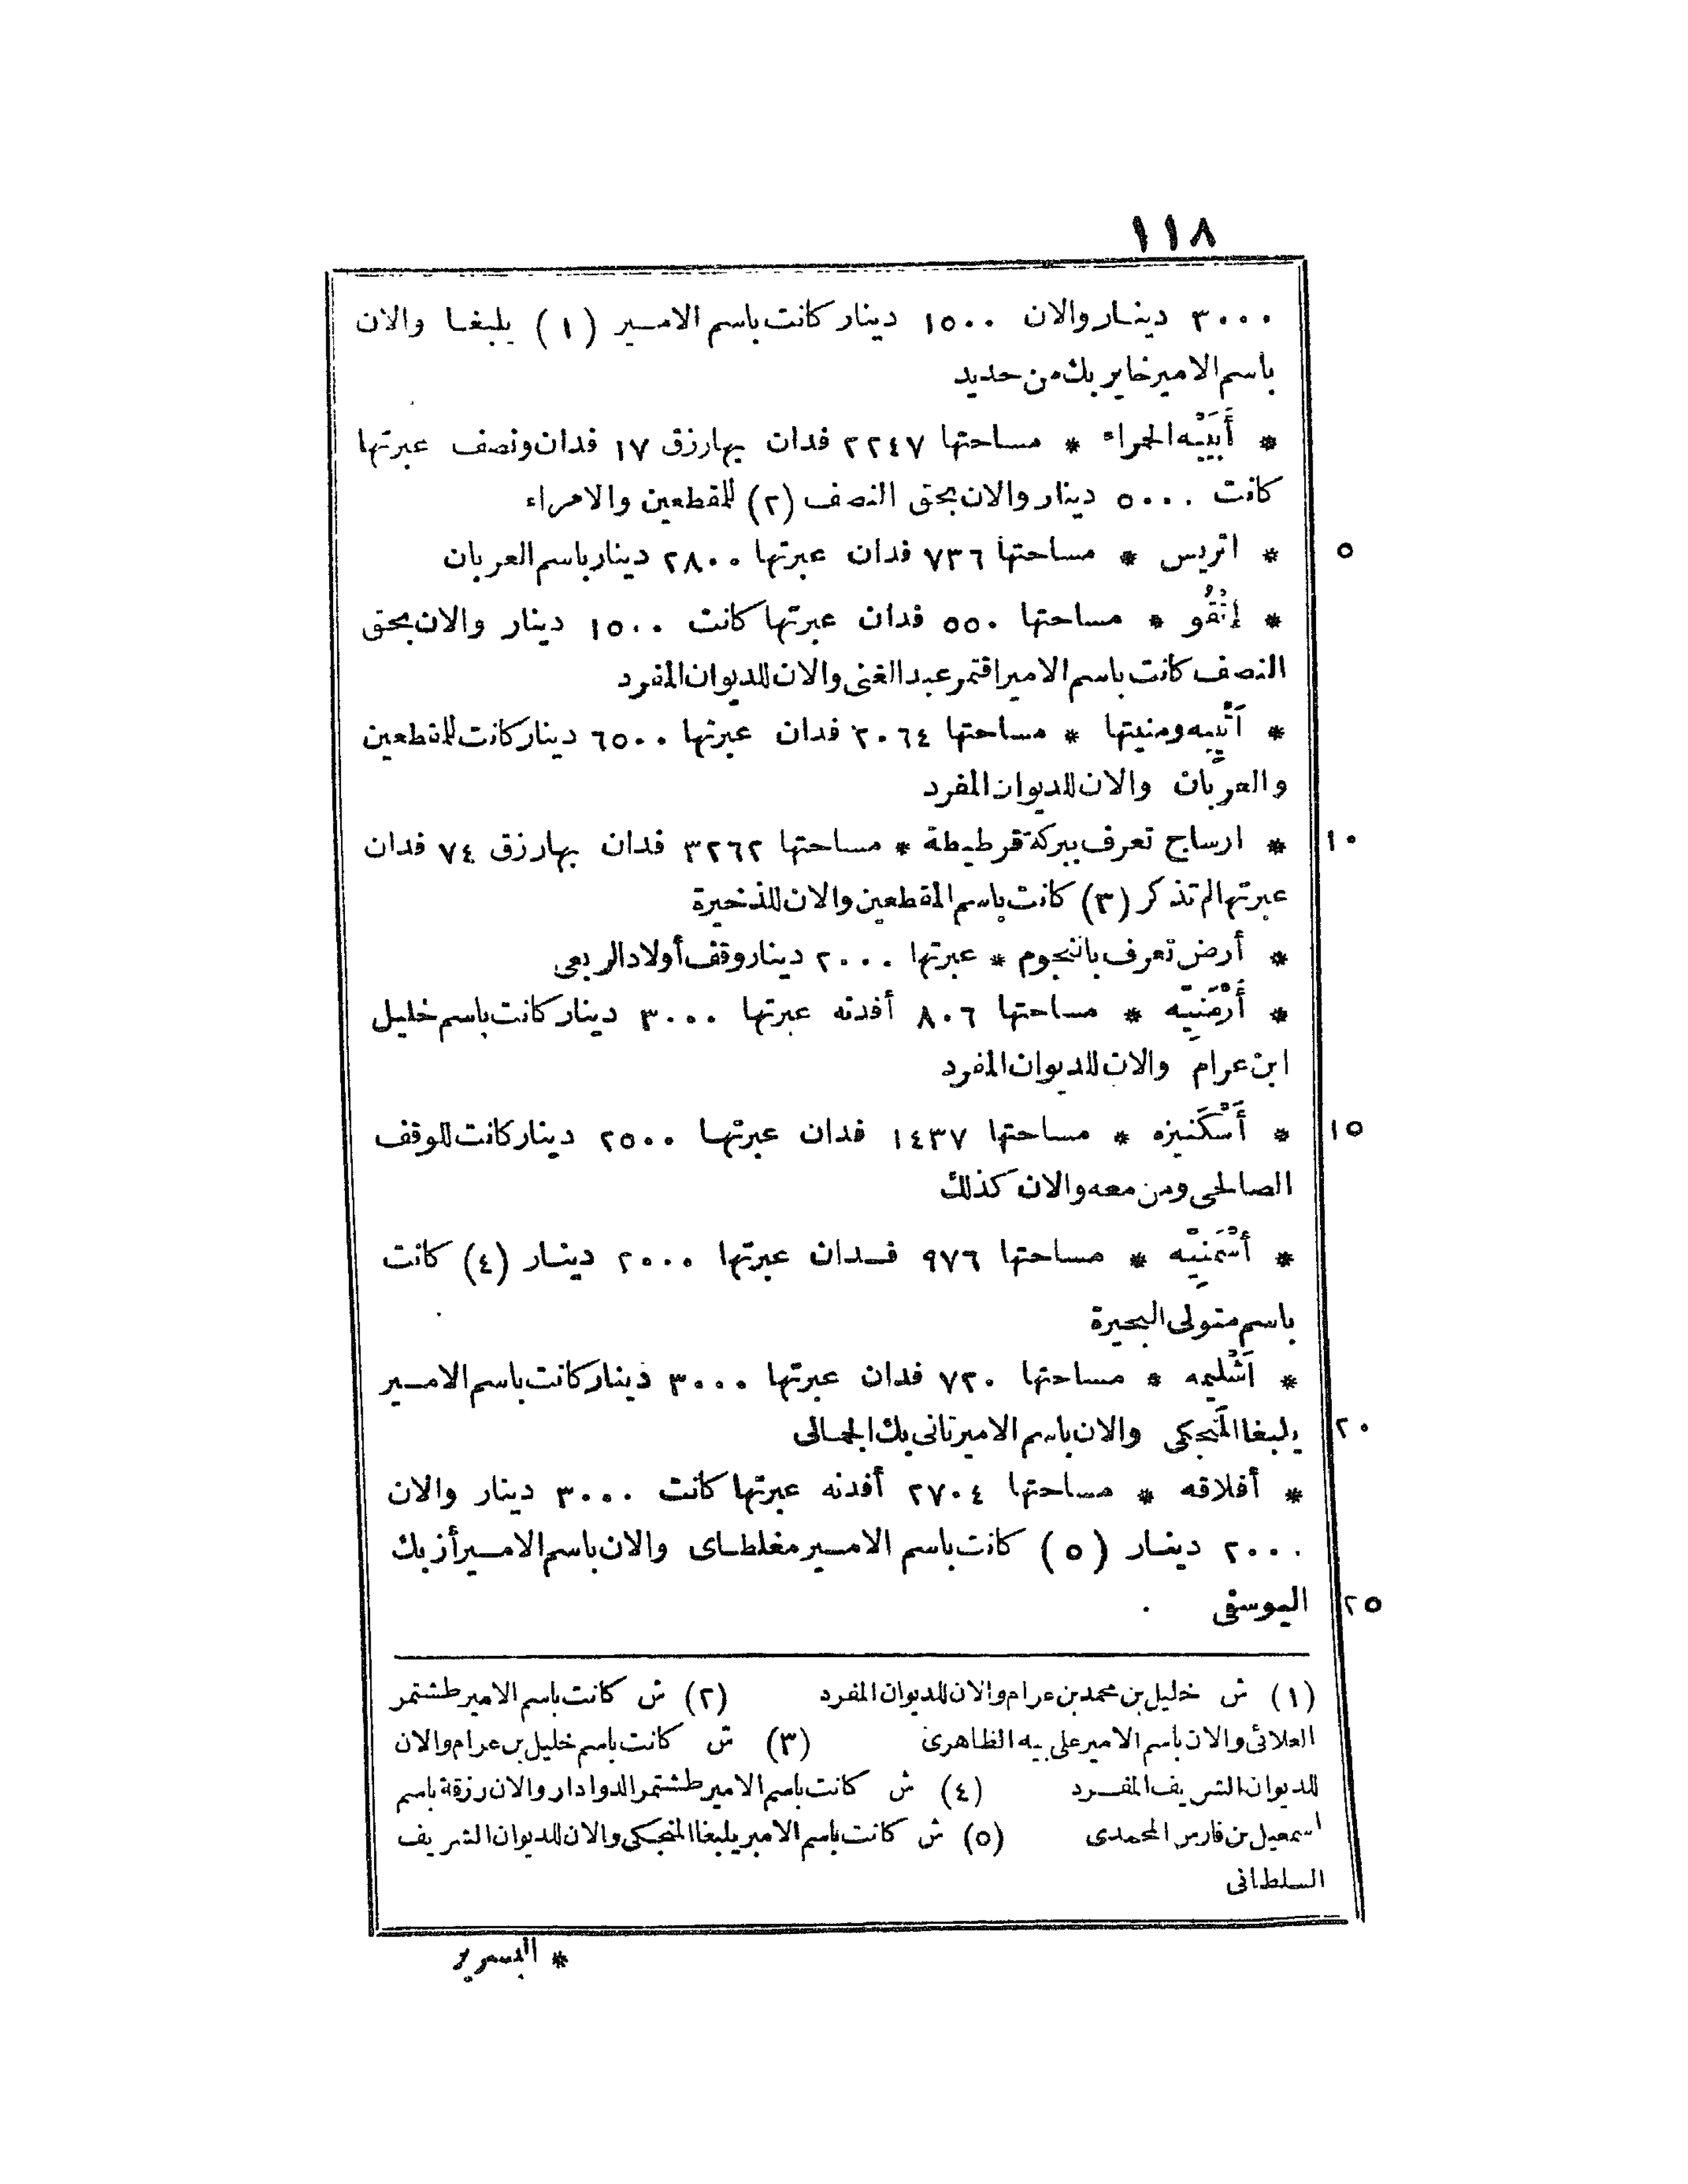 ١١٨
٣٠٠٠ دينار والان ١٥٠٠ دينار كانت باسم الامير (١) يلبغا والان
باسم الامير خاير بك من حديد
* أَبيَيْه الحمراء * مساحتها ٢٢٤٧ فدان بها رزق ١٧ فدان ونصف عبرتها
كانت ٥٠٠٠ دينار والان بحق النصف (٢) للمقطعين والامراء
٥ * اتريس * مساحتها ٧٣٦ فدان عبرتها ٢٨٠٠ دينار باسم العربان
* إتْقُو * مساحتها ٥٥٠ فدان عبرتها كانت ١٥٠٠ دينار والان بحق
النصف كانت باسم الامير اقتمر عبد الغنى والان للديوان المفرد
* اَتْييه ومنيتها * مساحتها ٢٠٦٤ فدان عبرتها ٦٥٠٠ دينار كانت للمقطعين
والعربان والان للديوان المفرد
١٠ * ارساج تعرف ببركة قرطيطة * مساحتها ٣٢٦٢ فدان بها رزق ٧٤ فدان
عبرتها لم تذكر (٣) كانت باسم المقطعين والان للذخيرة
* أرض تعرف بالنجوم * عبرتها ٢٠٠٠ دينار وقف أولاد الربعى
* أَرْمَنِيَّه * مساحتها ٨٠٦ أفدنه عبرتها ٣٠٠٠ دينار كانت باسم خليل
ابن عرام والان للديوان المفرد
١٥ * أَسْكَنيزه * مساحتها ١٤٣٧ فدان عبرتها ٢٥٠٠ دينار كانت للوقف
الصالحى ومن معه والان كذلك
* أَسْمَنِيْه * مساحتها ٩٧٦ فدان عبرتها ٢٠٠٠ دينار (٤) كانت
باسم متولى البحيرة
* اَشْليمه * مساحتها ٧٢٠ فدان عبرتها ٣٠٠٠ دينار كانت باسم الامير
٢٠ يلبغا المَنجكى والان باسم الامير تانى بك الجمالى
* أفلاقه * مساحتها ٢٧٠٤ أفدنه عبرتها كانت ٣٠٠٠ دينار والان
٢٠٠٠ دينار (٥) كانت باسم الامير مغلطاى والان باسم الامير أزبك
٢٥ اليوسفى
(١) ش خليل بن محمد بن عرام والان للديوان المفرد (٢) ش كانت باسم الامير طشتمر
العلائى والان باسم الامير على بيه الظاهرى (٣) ش كانت باسم خليل بن عرام والان
للديوان الشريف المفرد (٤) ش كانت باسم الامير طشتمر الدوادار والان رزقة باسم
اسمعيل بن فارس المحمدى (٥) ش كانت باسم الامير يلبغا المنجكى والان للديوان الشريف
السلطانى